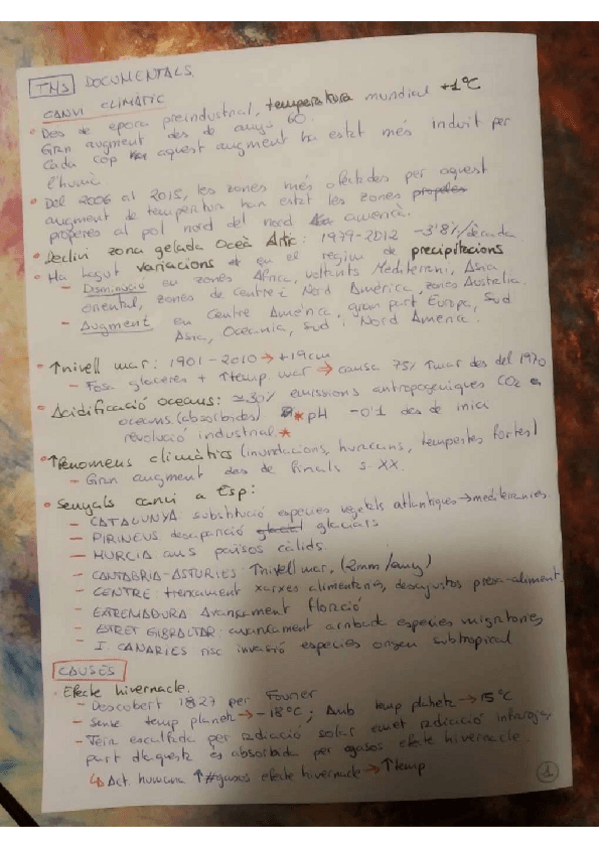 TMS DOCUMENTALS.
CANVI CLIMÀTIC
• Des de epoca preindustrial, temperatura mundial +1ºC
Gran augment des de anys 60.
Cada cop aquest augment ha estat més induit per
l'humà
• Del 2006 al 2015, les zones més afectades per aquest
augment de temperatura han estat les zones
properes al pol nord del nord america.
• Declivi zona gelada Oceà Àrtic: 1979-2012 -3'8%/década
• Ha hagut variacions en el regim de precipitacions
- Disminució en zones Àfrica, voltants Mediterrani, Àsia
oriental, zones de centre i Nord Amèrica, zones Australia.
- Augment en Centre Amèrica, gran part Europa, Sud
Àsia, Oceania, Sud i Nord Amèrica.
• ↑nivell mar: 1901-2010 → +19cm
- Fosa glaceres + ↑temp. mar → causa 75% ↑mar des del 1970
• Acidificació oceans: ≈30% emissions antropogeniques CO2 a
oceans.(absorbides) *pH -0'1 des de inici
revolució industrial.*
• ↑fenomens climàtics (inundacions, huracans, tempestes fortes)
- Gran augment des de finals s.XX.
• Senyals canvi a Esp:
- CATALUNYA substitució especies vegetals atlantiques→mediterranies.
- PIRINEUS desaparició glacials
- MURCIA: aus països càlids.
- CANTABRIA-ASTURIES: ↑nivell mar. (2mm/any)
- CENTRE: trencament xarxes alimentàries, desajustos presa-aliment.
- EXTREMADURA: Avançament floració
- ESTRET GIBRALTAR: avançament arribada especies migratories
- I. CANARIES risc invasió especies origen subtropical
CAUSES
• Efecte hivernacle.
- Descobert 1827 per Fourier
- Sense temp planeta → -18ºC; Amb temp planeta → 15ºC
- Terra escalfada per radiació solar emet radiació infraroja,
part d'aquesta és absorbida per gasos efecte hivernacle.
↳ Act. humana ↑#gasos efecte hivernacle → ↑temp
1